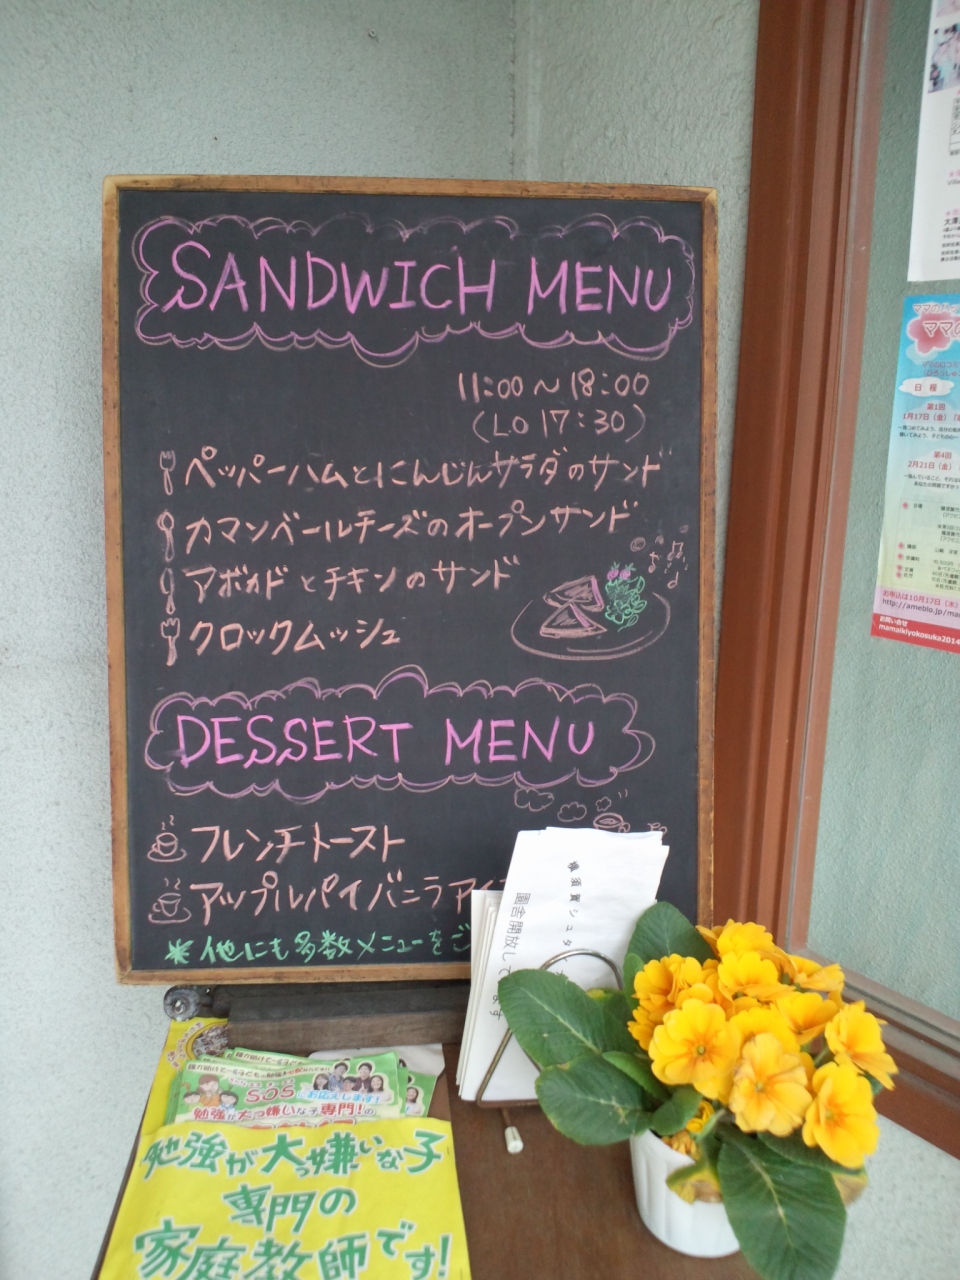 SANDWICH MENU
11:00～18:00
(LO 17:30)
ペッパーハムとにんじんサラダのサンド
カマンベールチーズのオープンサンド
アボカドとチキンのサンド
クロックムッシュ
DESSERT MENU
フレンチトースト
アップルパイバニラアイ
※他にも多数メニューをご
須賀シュタイ
園舎開放しています
SOS
にお応えします!
勉強が大っ嫌いな子専門!の
勉強が大っ嫌いな子
専門の
家庭教師です!
ママの
日程
第1回
1月17日(金)
第4回
2月21日(金)
お申込は10月17日(木)
http://ameblo.jp/ma
お問い合せ
mamaikiyokosuka2014